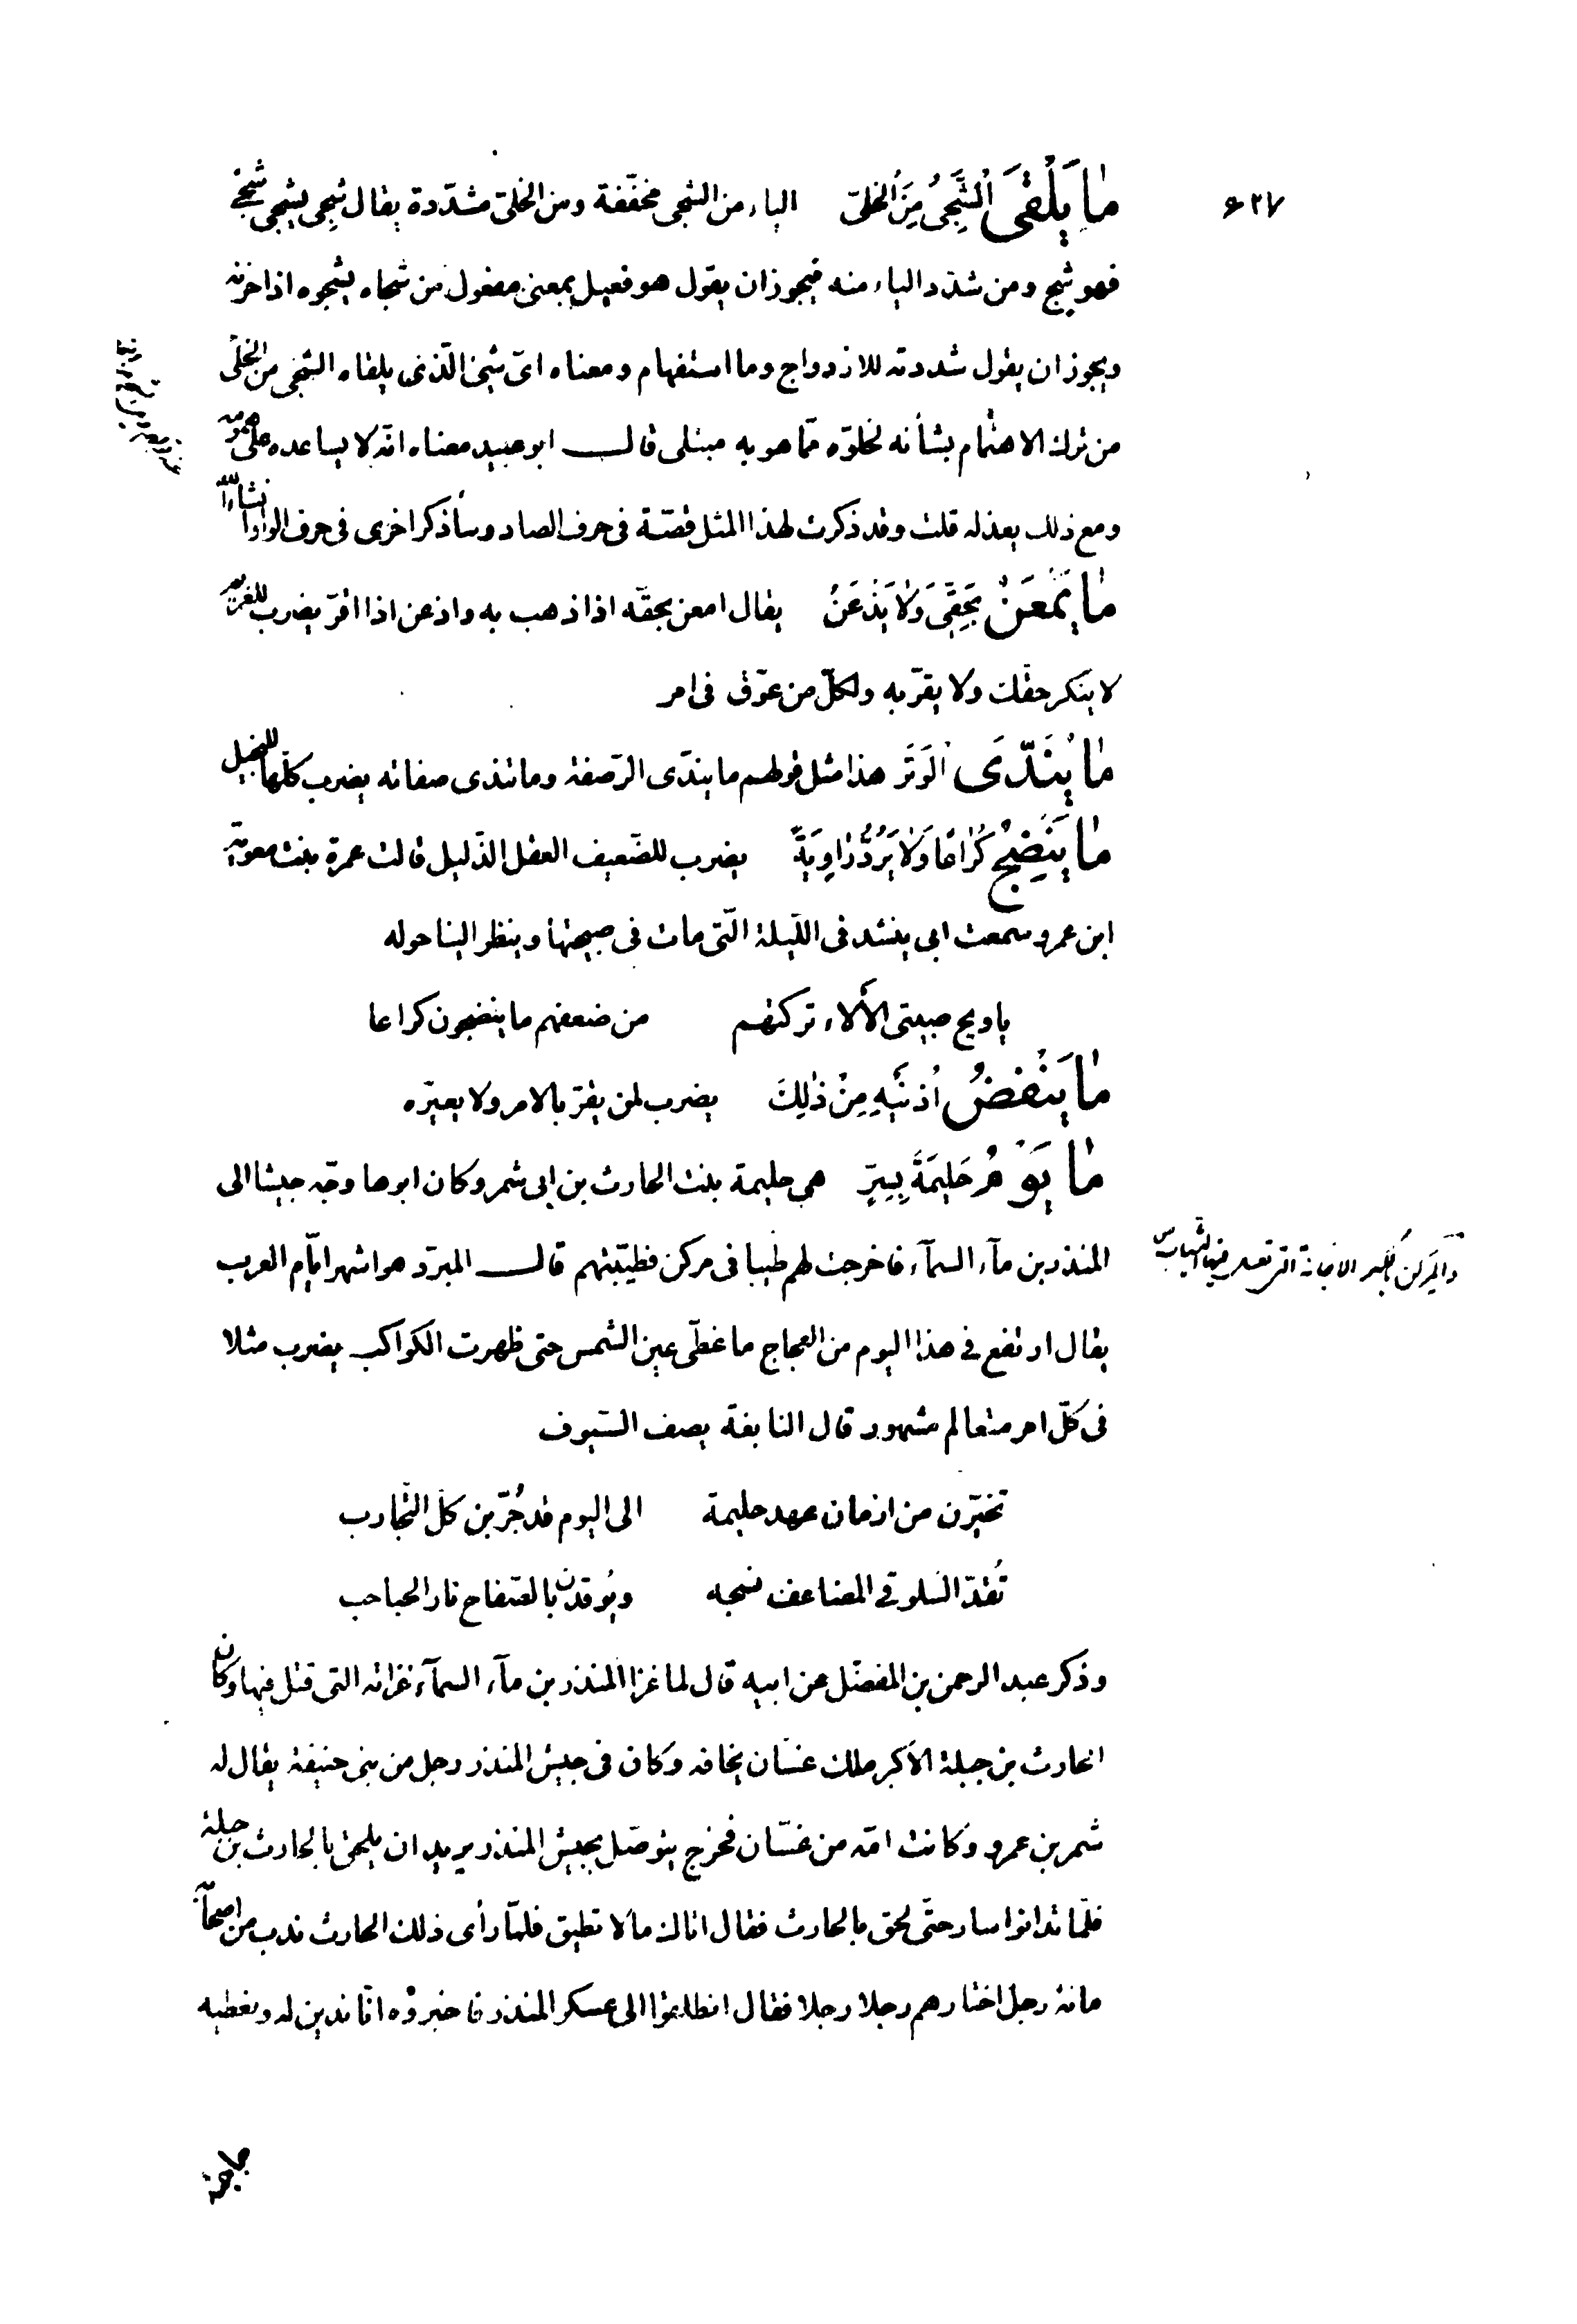 ٦٢٧
مٰا يَلْقىَ الشَّجِىُ مِنَ الخَلىّ الياء من الشجى مخفّفة ومن الخلىّ مشدّدة يقال شجِى يشجى شجى
فهو شجٍ ومن شدّد الياء منه فيجوز ان يقول هو فعيل بمعنى مفعول من شجاه يشجوه اذا حزنه
ويجوز ان يقول شددته للازدواج وما استفهام ومعناه اىّ شئ الّذى يلقاه الشجى من الخلّى
من ترك الاهتمام بشأنه لخلوّه ممّا هو به مبتلى قال ابو عبيد معناه انّه لا يساعده على همومه
ومع ذلك يعذله قلت وقد ذكرت لهذا المثل قصّة فى حرف الصاد وسأذكر اخرى فى حرف الواو انشاء الله
مٰا يُمْعِنُ بِحَقِّىَ وَلٰا يُذْعِنُ يقال امعن بحقّه اذا ذهب به واذعن اذا اقرّ يضرب للغريم
لا ينكر حقّك ولا يقرّ به ولكلّ من عوّق فى امر
مٰا يُنَدّىَ الْوَتَر هذا مثل قولهم ما يندّى الرّضفة وما تندى صفاته يضرب كلّها للبخيل
مٰا يُنضِجُ كُرٰاعًا وَلٰا يَرُدُّ رٰاوِيَةً يضرب للضّعيف العقل الذّليل قالت عمرة بنت معوية
ابن عمرو سمعت ابى ينشد فى اللّيلة الّتى مات فى صبيحتها وينظر الينا حوله
ياويح صبيتى الألاء تركتهم من ضعفهم ما ينضجون كراعا
مٰا يَنْفُضُ اُذنَيْهِ مِنْ ذٰلِكَ يضرب لمن يقرّ بالامر ولا يغيّره
مٰا يَوْمُ حَلِيمَةَ بِسِرّ هى حليمة بنت الحارث بن ابى شمر وكان ابوها وجّه جيشا الى
المنذر بن مآء السمآء فاخرجت لهم طيبا فى مركن فطيّبتهم قال المبرّد هو اشهر ايّام العرب
يقال ارتفع فى هذا اليوم من العجاج ما غطّى عين الشمس حتى ظهرت الكواكب يضرب مثلا
فى كلّ امر متعالم مشهور قال النابغة يصف السّيوف
تخيّرن من ازمان عهد حليمة الى اليوم قد جُرّبن كلّ التّجارب
تُقدّ السّلوقى المضاعف نسجه ويُوقدن بالصّفاح نار الحباحب
وذكر عبد الرحمن بن المفضّل عن ابيه قال لما غزا المنذر بن مآء السمآء غزاته التى قتل فيها وكان
الحارث بن جبلة الاكبر ملك غسّان يخافه وكان فى جيش المنذر رجل من بنى حنيفة يقال له
شمر بن عمرو وكانت امّه من غسّان فخرج يتوصّل بجيش المنذر يريد ان يلحق بالحارث بن جبلة
فلمّا تدانوا سار حتّى لحق بالحارث فقال اتاك ما لا تطيق فلمّا رأى ذلك الحارث ندب من اصحابه
مائة رجل اختارهم رجلا رجلا فقال انطلقوا الى عسكر المنذر فاخبروه انّا ندين له ونعطيه
والمركن الاجانة التى تغسل فيها الثياب
حاجته